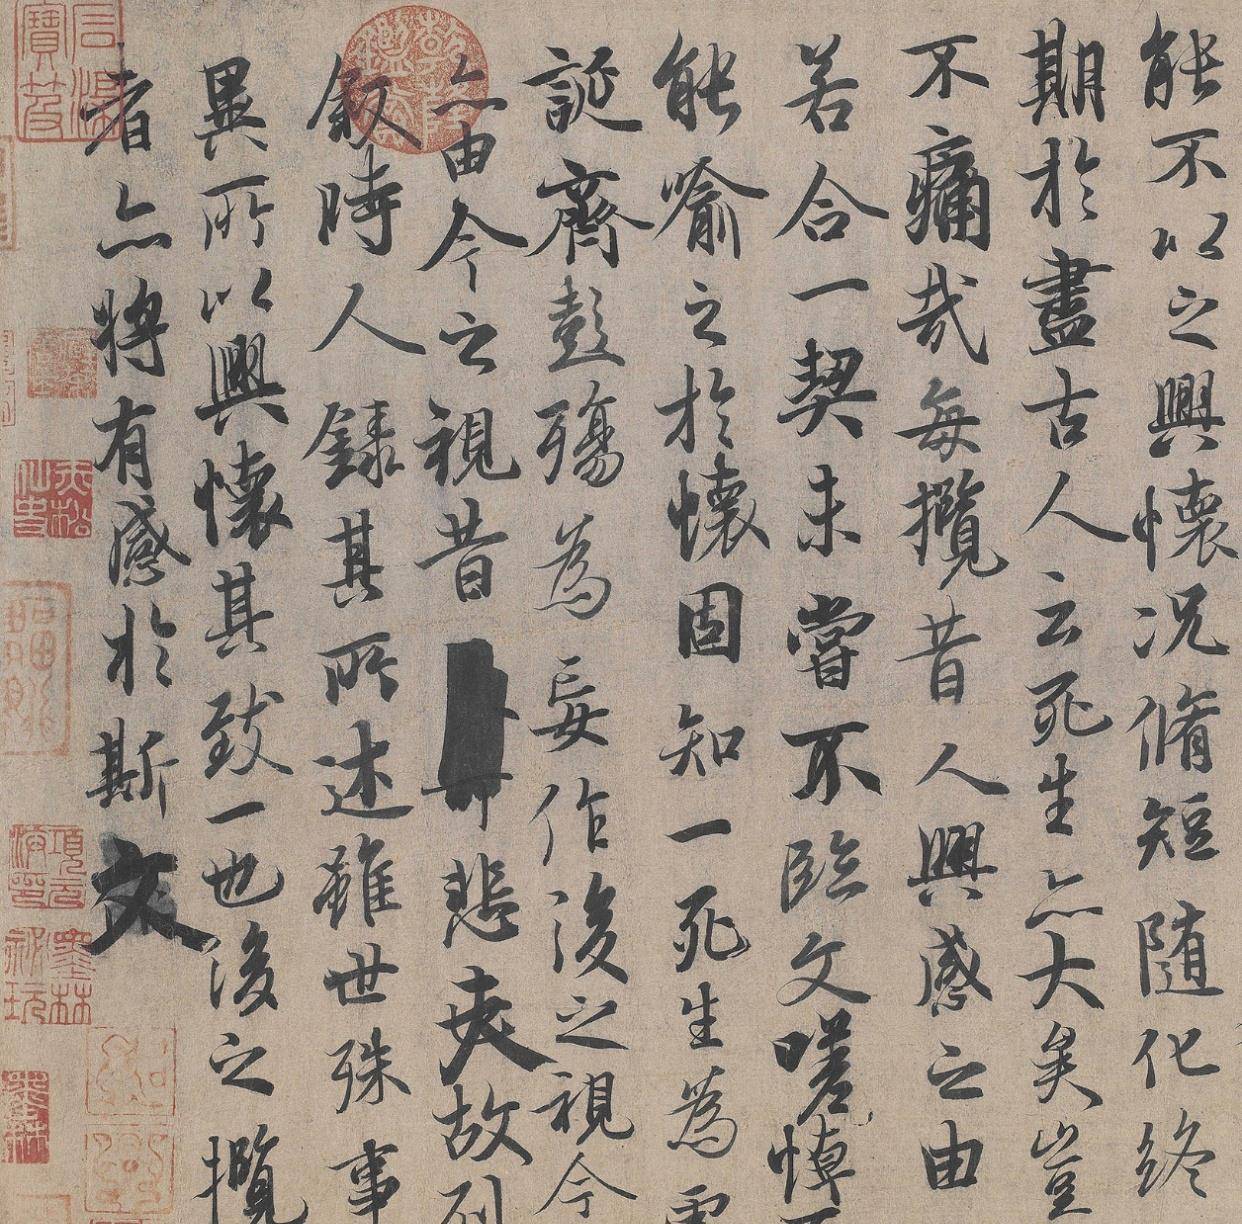 能不以之興懷况脩短随化終
期於盡古人云死生亦大矣豈
不痛哉每攬昔人興感之由
若合一契未嘗不臨文嗟悼不
能喻之於懷固知一死生為虛
誕齊彭殤為妄作後之視今
亦由今之視昔悲夫故列
敘時人錄其所述雖世殊事
異所以興懷其致一也後之攬
者亦將有感於斯文
墨林祕玩